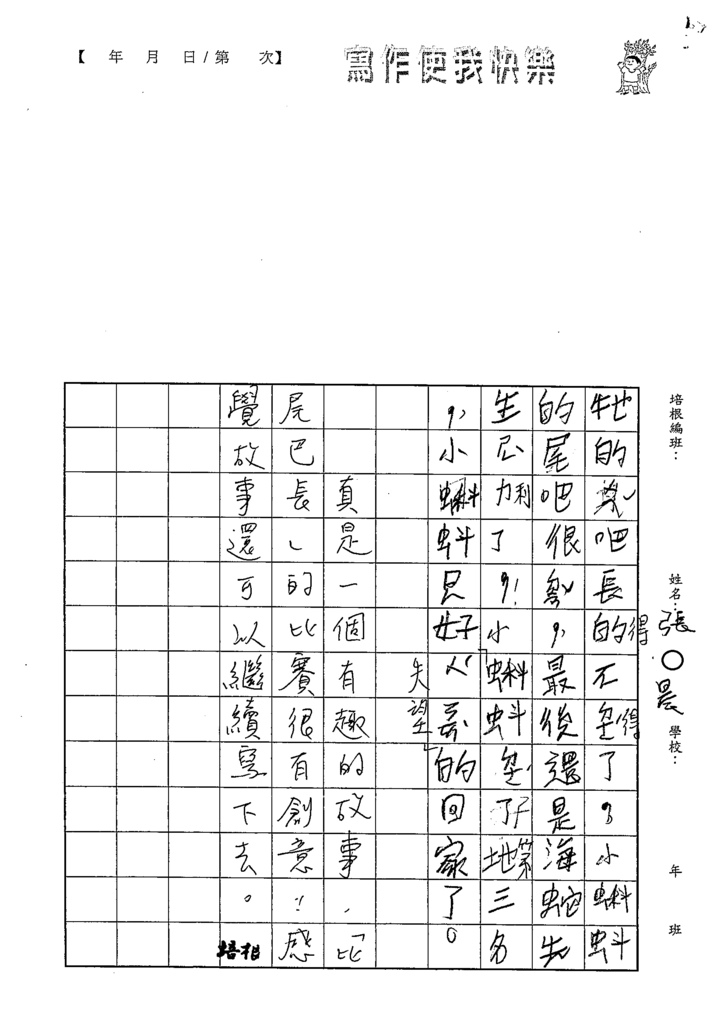 【 年 月 日/第 次】
寫作使我快樂
培根編班：
姓名：張○晨
學校：
年 班
牠的吧長的得不得了，小蝌蚪
的尾吧很，最後還是海蛇先
生利了！小蝌蚪了第三名
，小蝌蚪只好失望的回家了。
真是一個有趣的故事，「比
尾巴長」的比賽很有創意！感
覺故事還可以繼續寫下去。培根